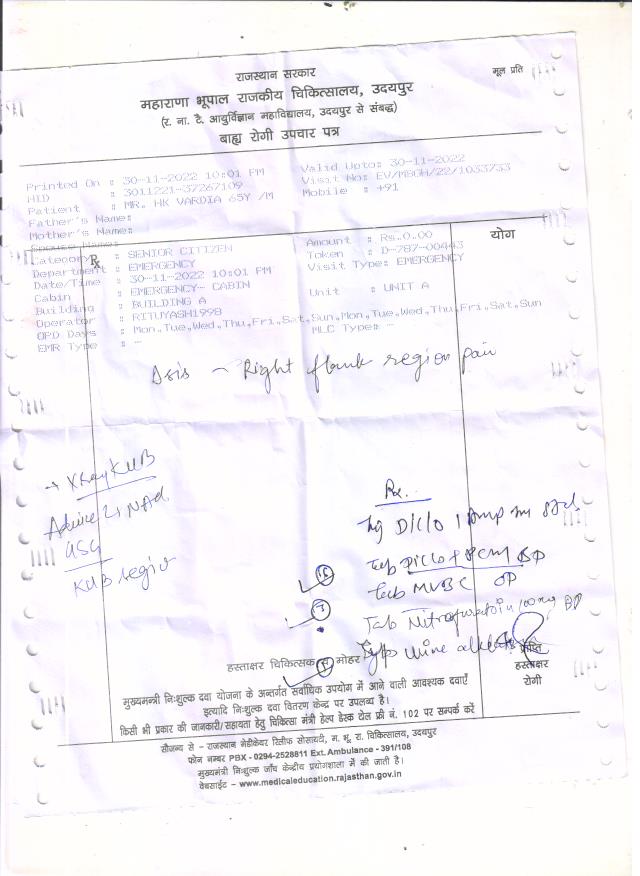 राजस्थान सरकार
मूल प्रति
महाराणा भूपाल राजकीय चिकित्सालय, उदयपुर
(र. ना. टै. आयुर्विज्ञान महाविद्यालय, उदयपुर से संबद्ध)
बाह्य रोगी उपचार पत्र
Printed On : 30-11-2022 10:01 PM Valid Upto: 30-11-2022
HID : 3011221-37267109 Visit No: EV/MBGH/22/1033733
Patient : MR. HK VARDIA 65Y /M Mobile : +91
Father's Name:
Mother's Name:
Spouse Name:
योग
Rx
Category : SENIOR CITIZEN Amount : Rs.0.00
Department : EMERGENCY Token : D-787-00443
Date/Time : 30-11-2022 10:01 PM Visit Type: EMERGENCY
Cabin : EMERGENCY- CABIN
Building : BUILDING A Unit : UNIT A
Operator : RITUYASH1998
OPD Days : Mon,Tue,Wed,Thu,Fri,Sat,Sun,Mon,Tue,Wed,Thu,Fri,Sat,Sun
EMR Type : - MLC Type: -
Right flank region pain
→ Xray KUB
Advice
USG
KUB region
Rx
Inj Diclo 1 Amp im
Tab Diclo + PCM BD
Tab MVBC OD
Tab Nitrofurantoin 100mg BD
हस्ताक्षर चिकित्सक मोहर
हस्ताक्षर
रोगी
मुख्यमन्त्री निःशुल्क दवा योजना के अन्तर्गत सर्वाधिक उपयोग में आने वाली आवश्यक दवाएँ
इत्यादि निःशुल्क दवा वितरण केन्द्र पर उपलब्ध है।
किसी भी प्रकार की जानकारी/सहायता हेतु चिकित्सा मंत्री हेल्प डेस्क टोल फ्री नं. 102 पर सम्पर्क करें
सौजन्य से - राजस्थान मेडीकेयर रिलीफ सोसायटी, म. भू. रा. चिकित्सालय, उदयपुर
फोन नम्बर PBX - 0294-2528811 Ext. Ambulance - 391/108
मुख्यमन्त्री निःशुल्क जाँच केन्द्रीय प्रयोगशाला में की जाती है।
वेबसाईट - www.medicaleducation.rajasthan.gov.in